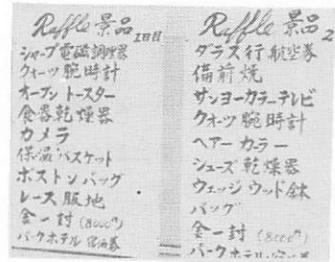 Raffle 景品 1日目
シャープ電磁調理器
クォーツ腕時計
オーブントースター
食器乾燥器
カメラ
保温バスケット
ボストンバッグ
レース服地
金一封 (8000円)
パークホテル宿泊券
Raffle 景品 2
ダラス行航空券
備前焼
サンヨーカラーテレビ
クォーツ腕時計
ヘアーカラー
シューズ乾燥器
ウェッジウッド鉢
バッグ
金一封 (8000円)
パークホテル